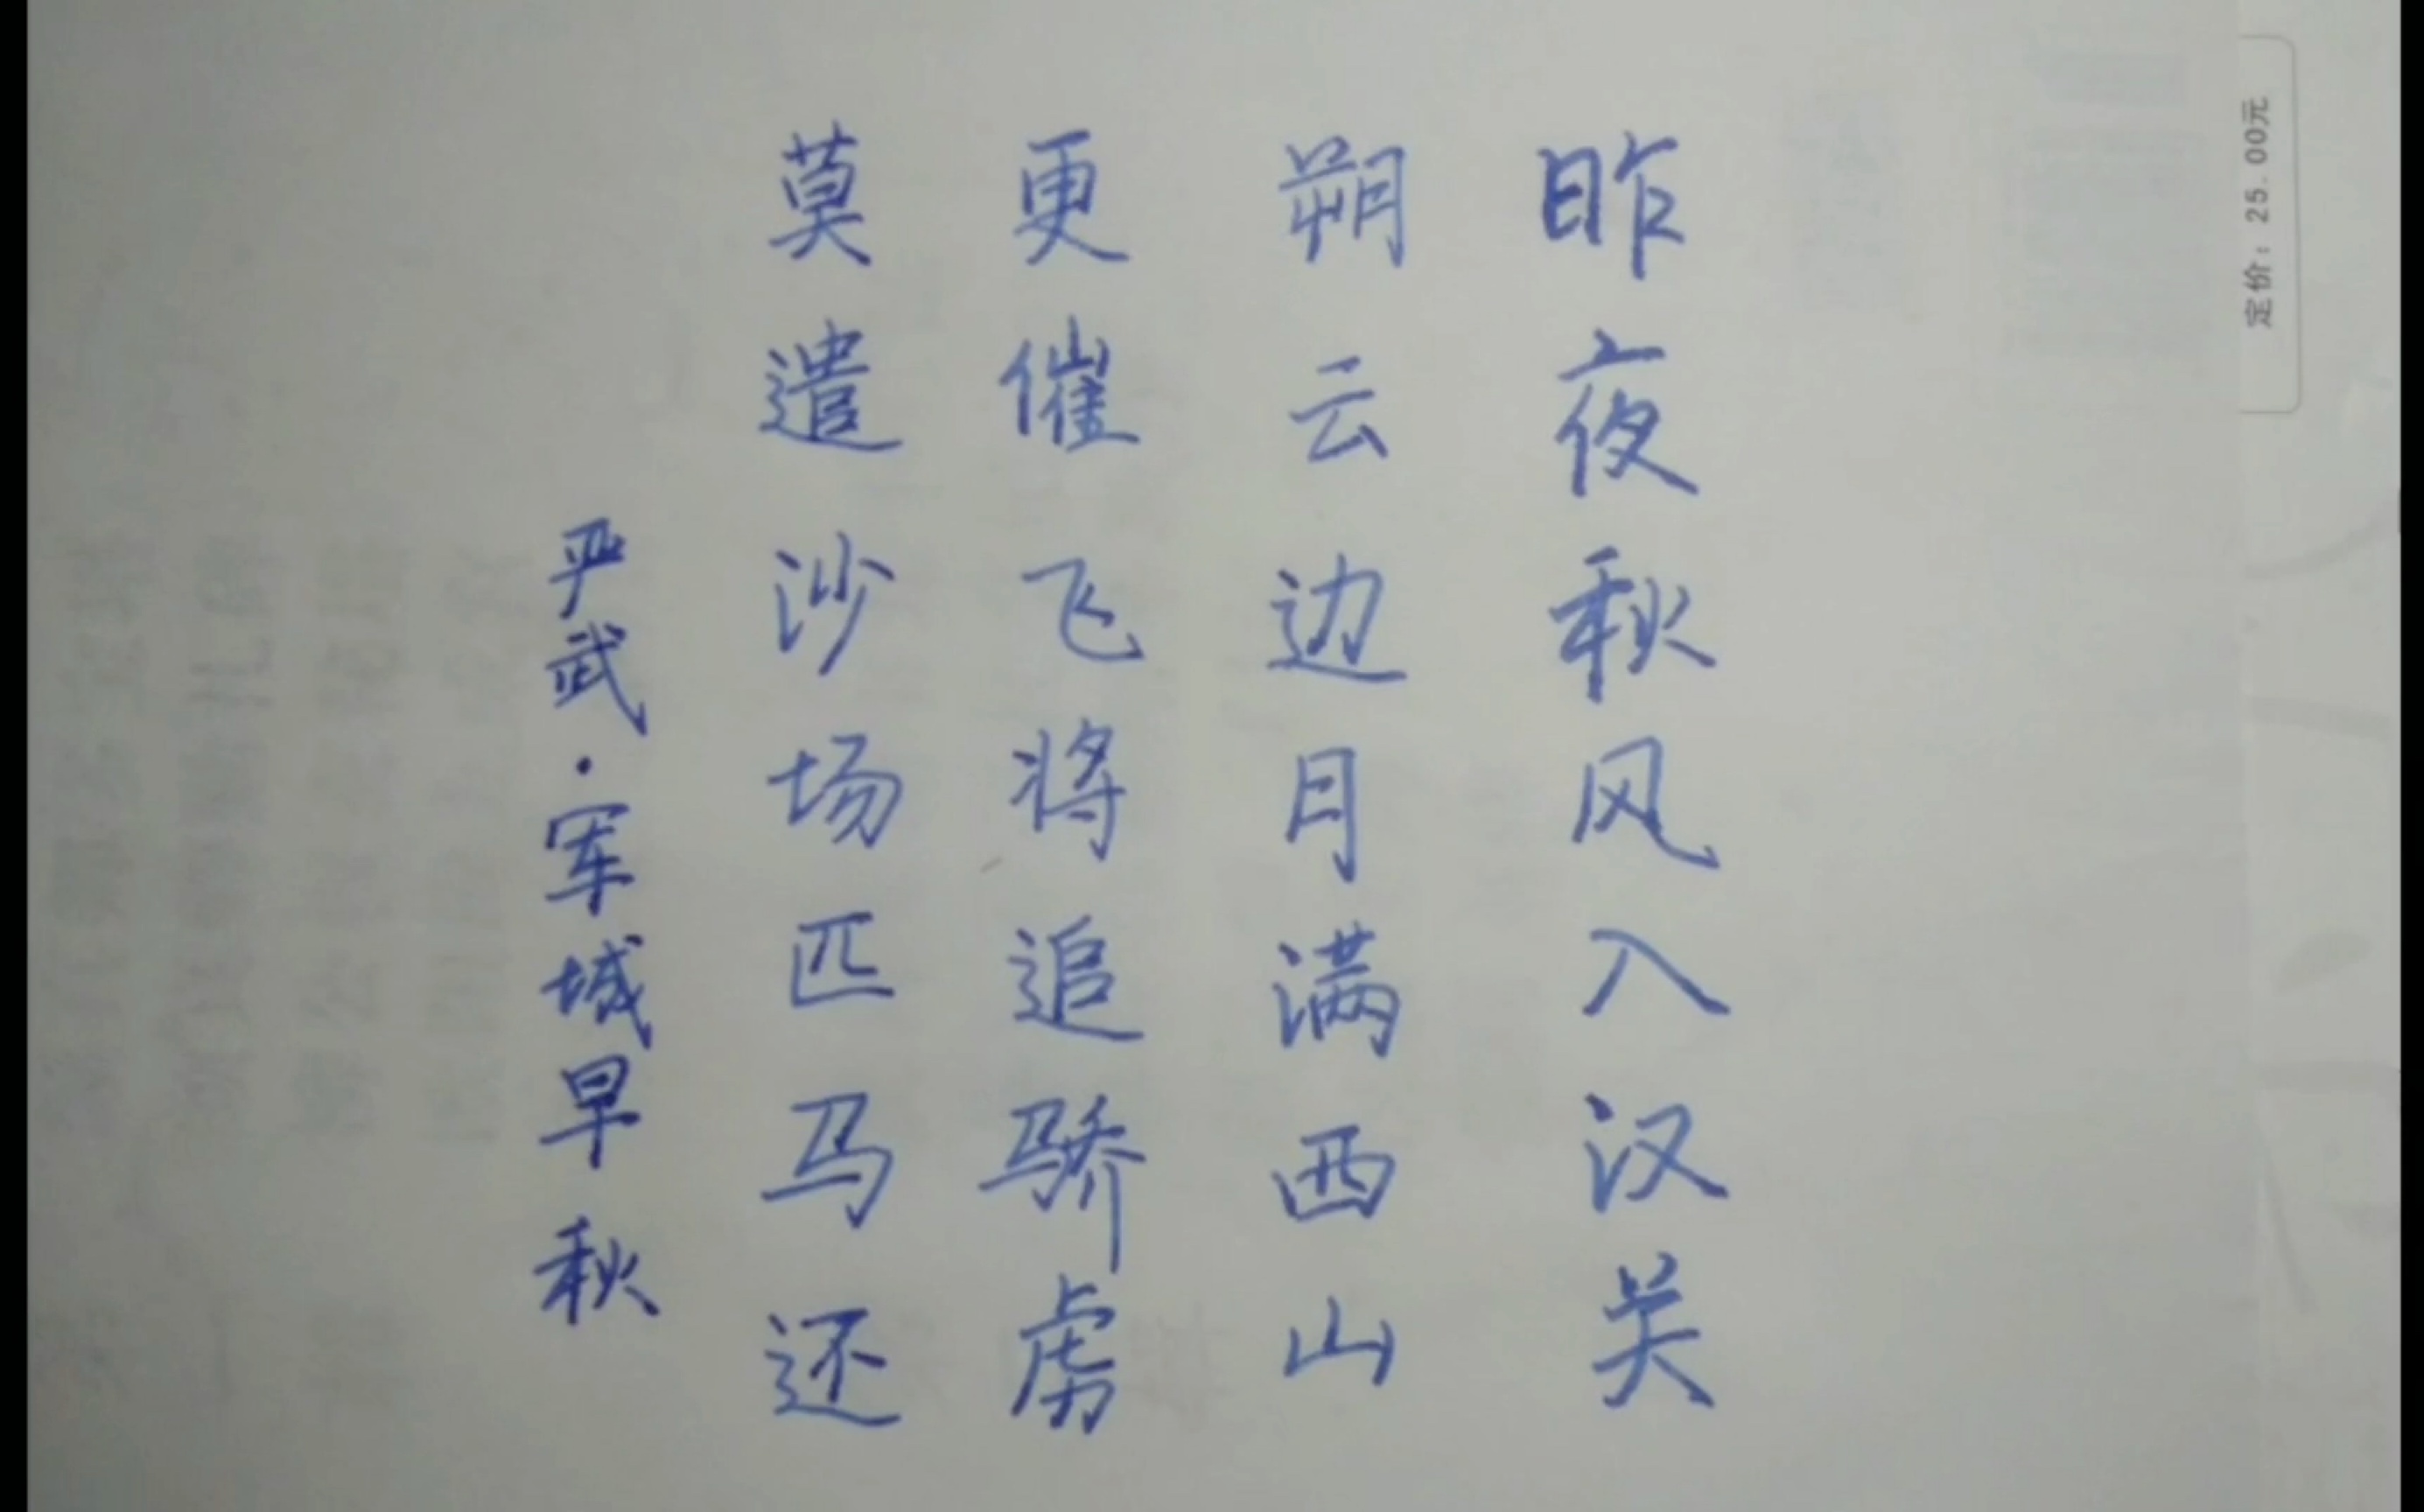 昨夜秋风入汉关
朔云边月满西山
更催飞将追骄虏
莫遣沙场匹马还
严武·军城早秋
定价：25.00元